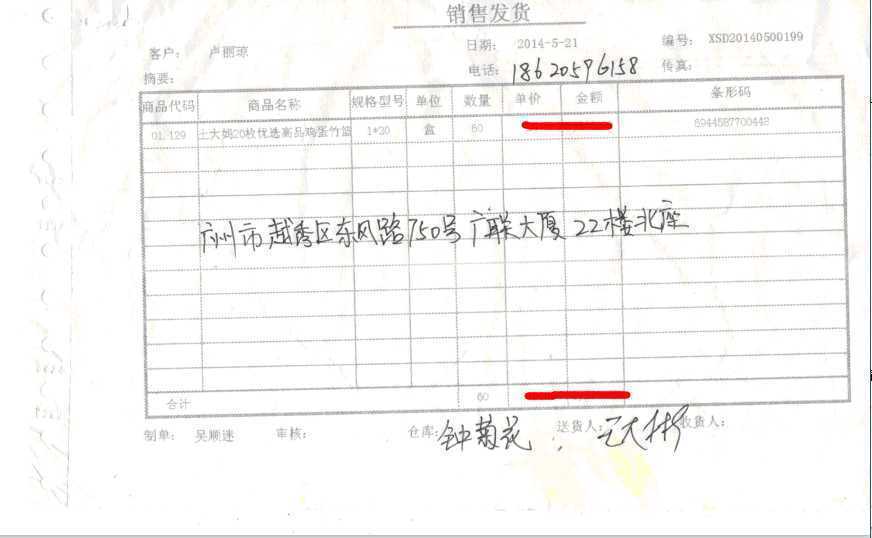 销售发货
客户: 卢丽琼 日期: 2014-5-21 编号: XSD20140500199
摘要: 电话: 18620596158 传真:
商品代码 商品名称 规格型号 单位 数量 单价 金额 条形码
01.129 土大妈20枚优选高品鸡蛋竹篮 1*20 盒 60 6944587700448
广州市越秀区东风路750号广联大厦22楼北座
合计 60
制单: 吴顺迷 审核: 仓库: 钟菊花 送货人: 王大彬 收货人: